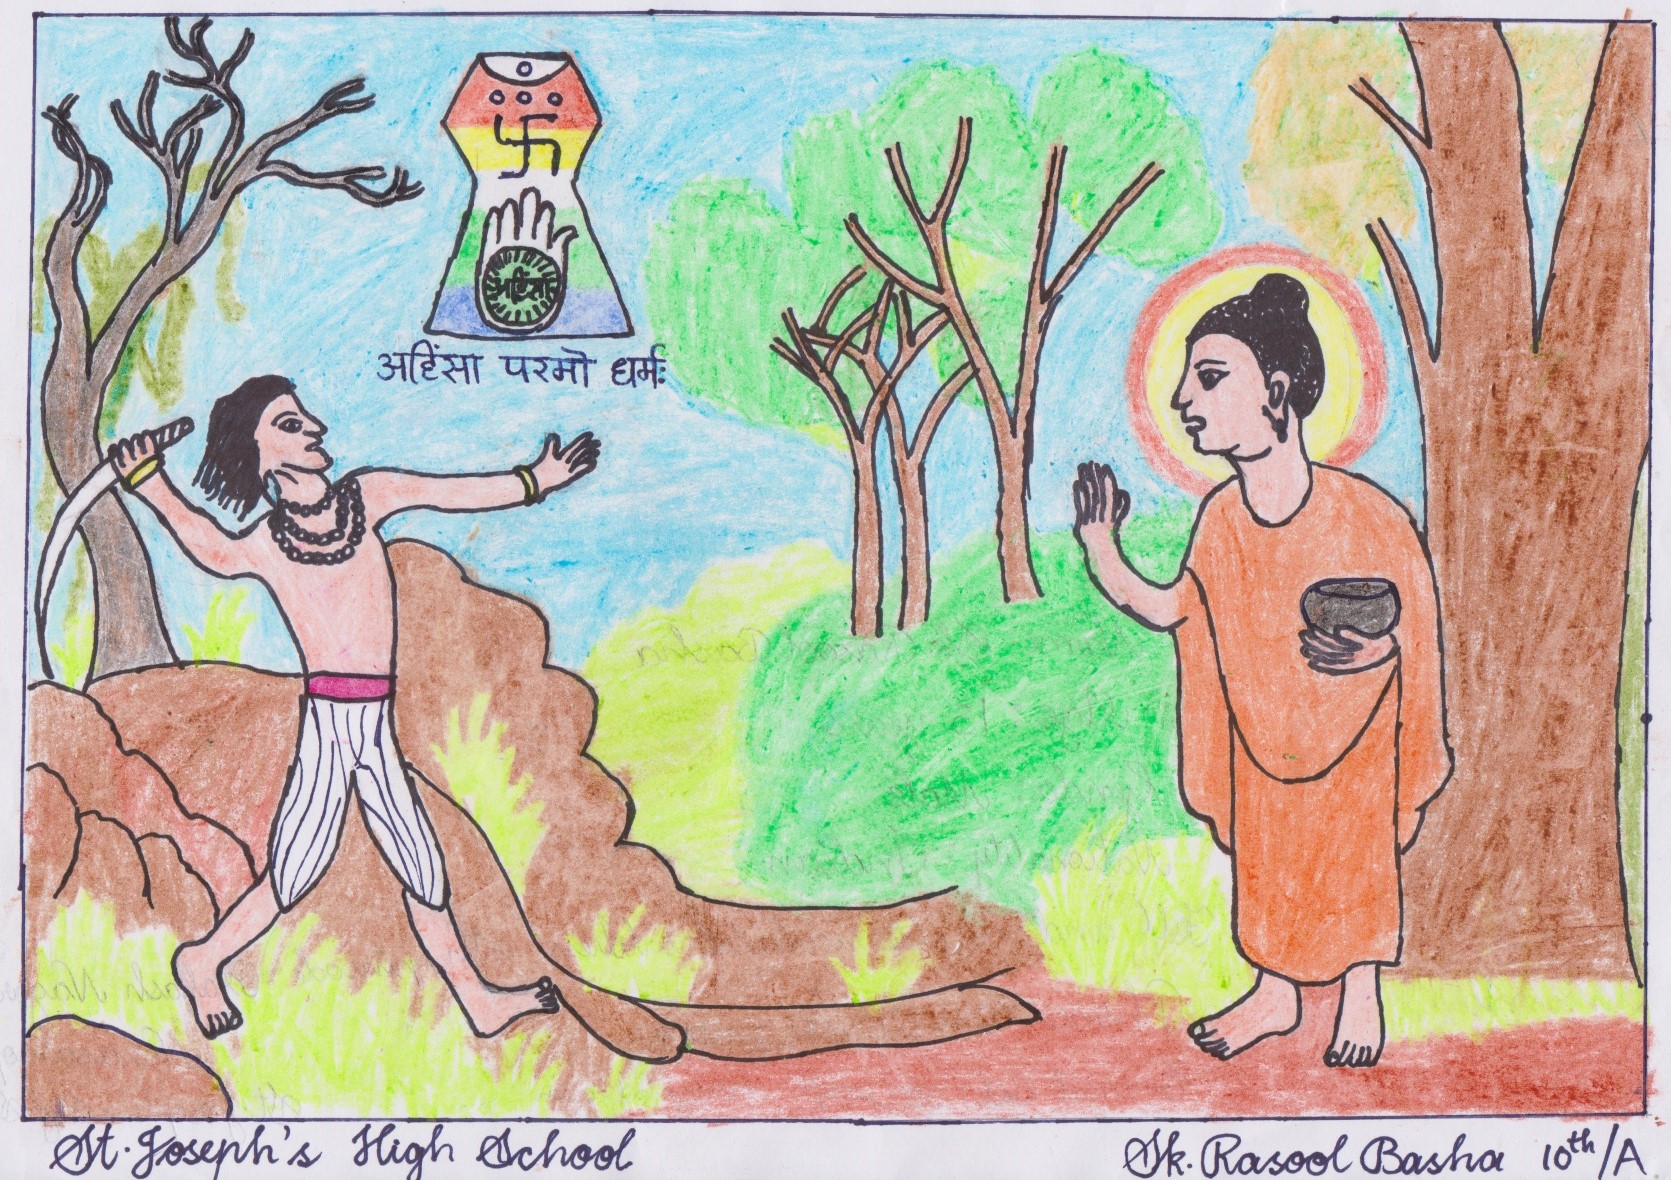 अहिंसा
अहिंसा परमो धर्मः
St. Joseph's High School
Sk. Rasool Basha 10th/A